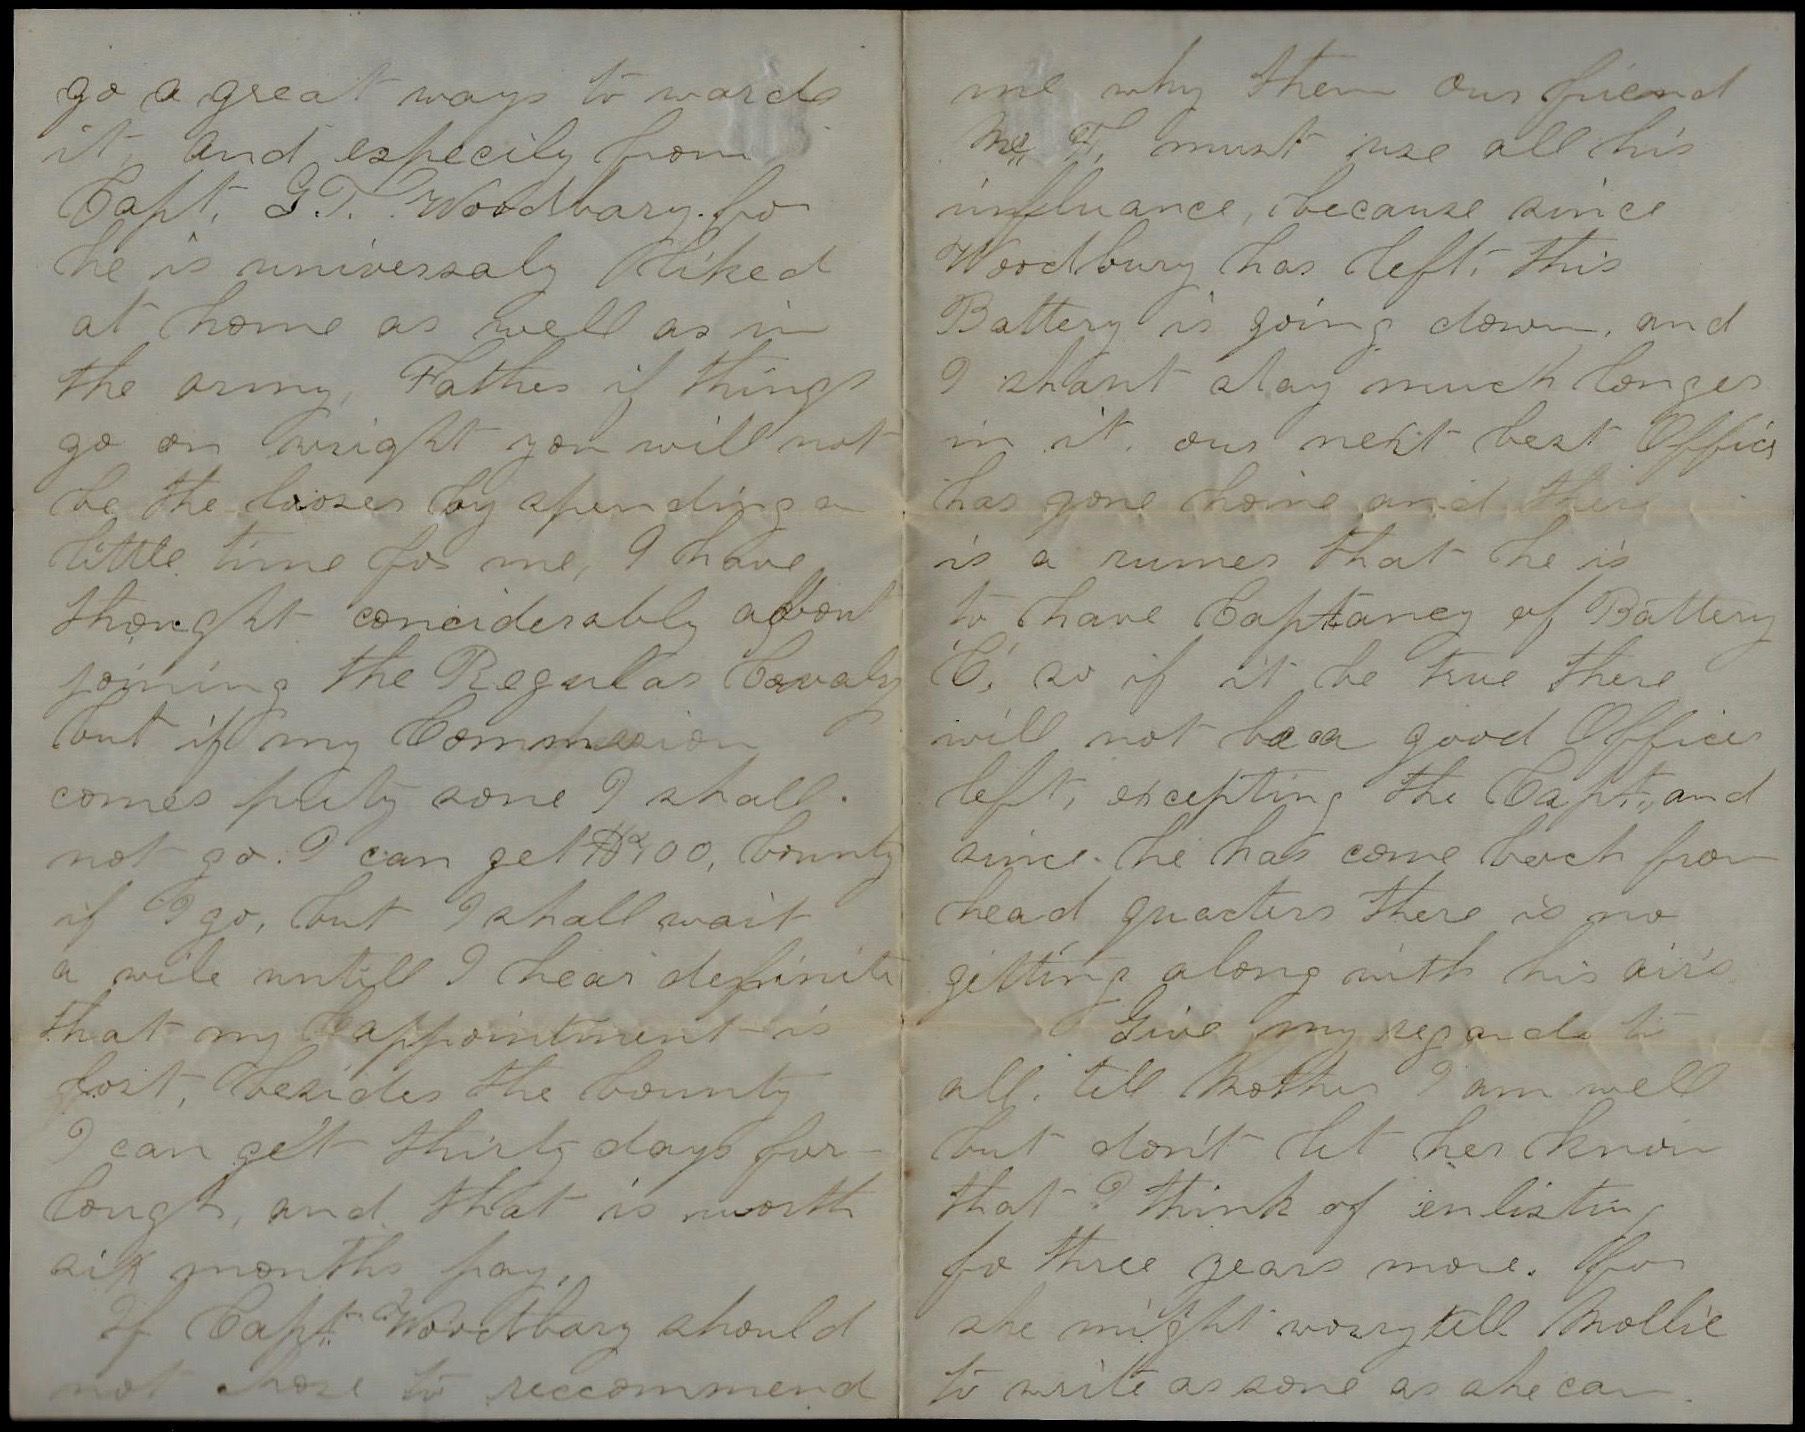 go a great ways to wards
it, and especily from
Capt. G.T. Woodbary. for
he is universaly liked
at home as well as in
the army, Father if things
go on wright you will not
be the looser by spending a
little time for me, I have
thought conciderably about
joining the Regular Cavaly
but if my Commission
comes prity sone I shall
not go. I can get $400, bounty
if I go, but I shall wait
a wile untill I hear definite
that my appointment is
lost, besides the bounty
I can get thirty days fur-
lough, and that is worth
six months pay,
If Capt. Woodbary should
not chose to reccommend
me why then our friend
Mr. F. must use all his
influance, because since
Woodbury has left, this
Battery is going down, and
I shant stay much longer
in it. our next best Officer
has gone home and their
is a rumer that he is
to have Captancy of Battery
'C', so if it be true there
will not be a good Officer
left, excepting the Capt., and
since he has come back from
head quarters there is no
gitting along with his air's
Give my regards to
all. tell Mother I am well
but don't let her know
that I think of enlisting
fo three years more. for
she might worry tell Mollie
to write as sone as she can